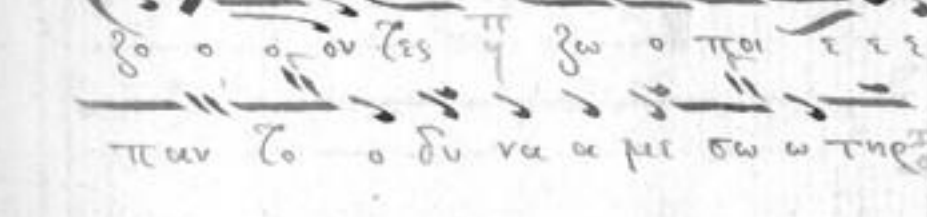 ζο ο ο ον τες η ζω ο ποι ε ε ε
παν το ο δυ να α με σω ω τηρ